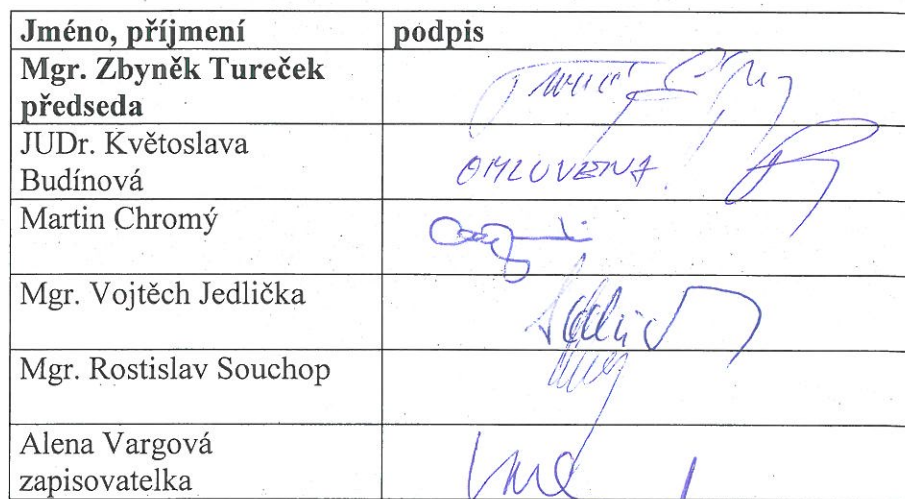 Jméno, příjmení podpis
Mgr. Zbyněk Tureček
předseda
JUDr. Květoslava
Budínová OMLUVENA!
Martin Chromý
Mgr. Vojtěch Jedlička
Mgr. Rostislav Souchop
Alena Vargová
zapisovatelka